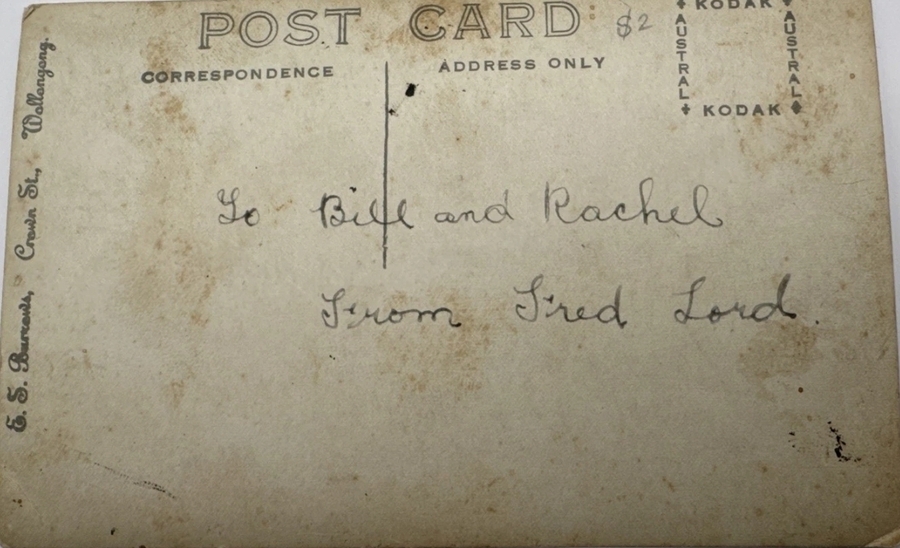 POST CARD
$2
CORRESPONDENCE
ADDRESS ONLY
KODAK
AUSTRAL
AUSTRAL
KODAK
To Bill and Rachel
From Fred Lord.
E. S. Burrows, Crown St., Wollongong.